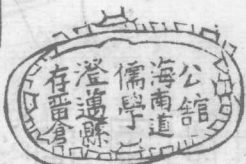 公舘
海南道
儒學
澄邁縣
存畱倉